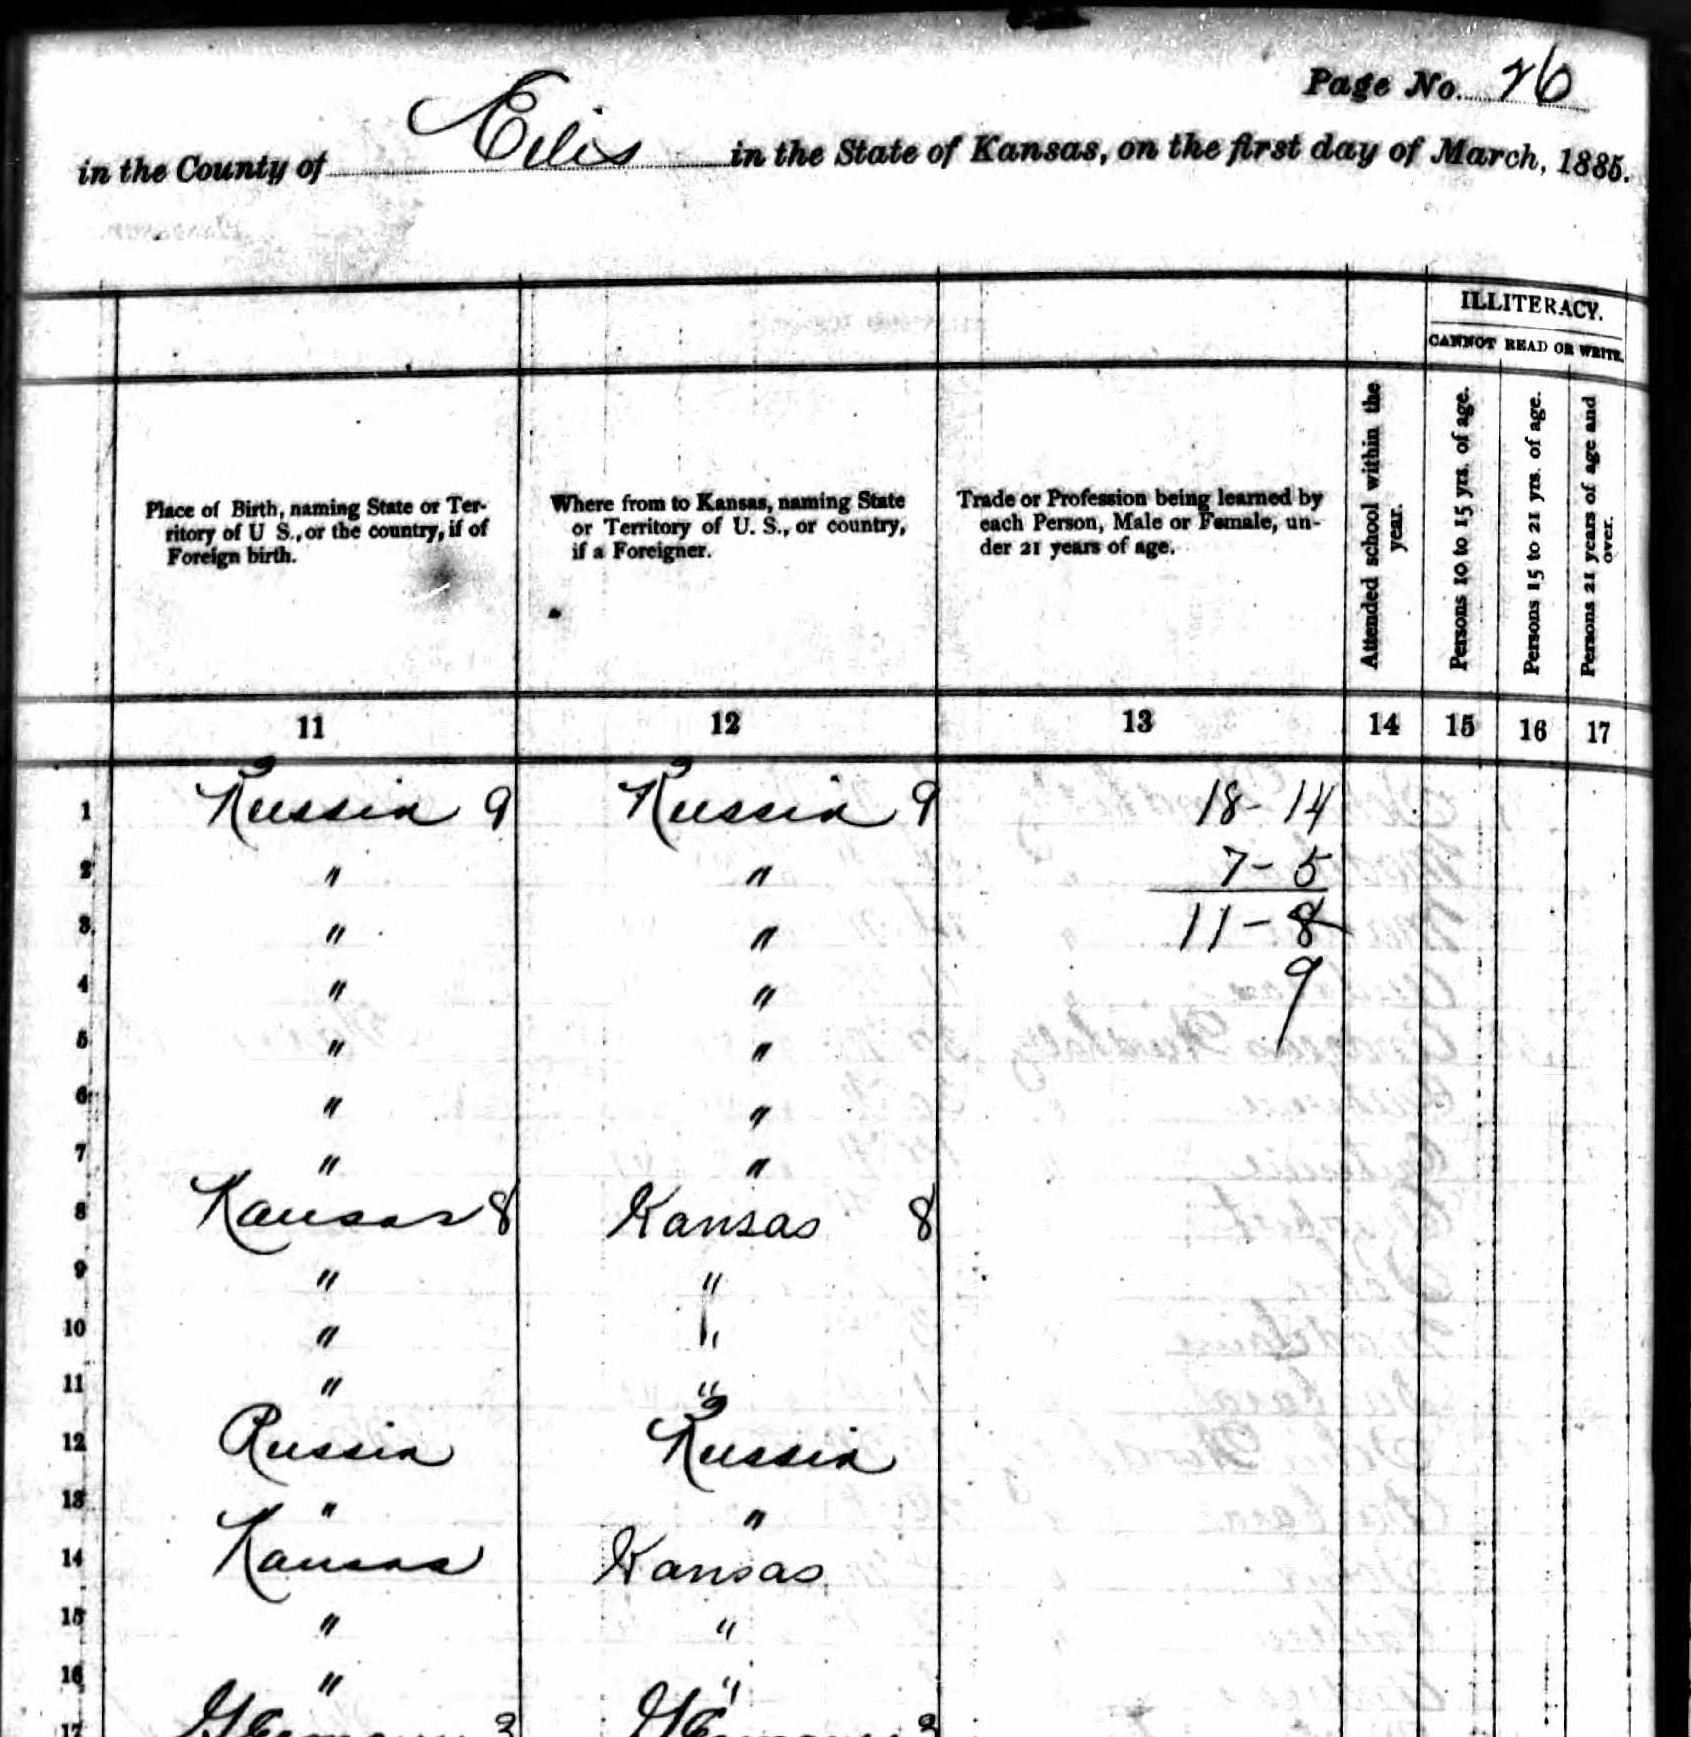 Page No. 26
in the County of Ellis in the State of Kansas, on the first day of March, 1885.
ILLITERACY.
CANNOT READ OR WRITE.
Place of Birth, naming State or Ter-
ritory of U S., or the country, if of
Foreign birth.
Where from to Kansas, naming State
or Territory of U. S., or country,
if a Foreigner.
Trade or Profession being learned by
each Person, Male or Female, un-
der 21 years of age.
Attended school within the
year.
Persons 10 to 15 yrs. of age.
Persons 15 to 21 yrs. of age.
Persons 21 years of age and
over.
11 12 13 14 15 16 17
1 Russia 9 Russia 9 18-14
2 " " 7-5
3 " " 11-8
4 " " 9
5 " "
6 " "
7 " "
8 Kansas 8 Kansas 8
9 " "
10 " "
11 " "
12 Russia Russia
13 " "
14 Kansas Kansas
15 " "
16 " "
17 Germany 3 Germany 3